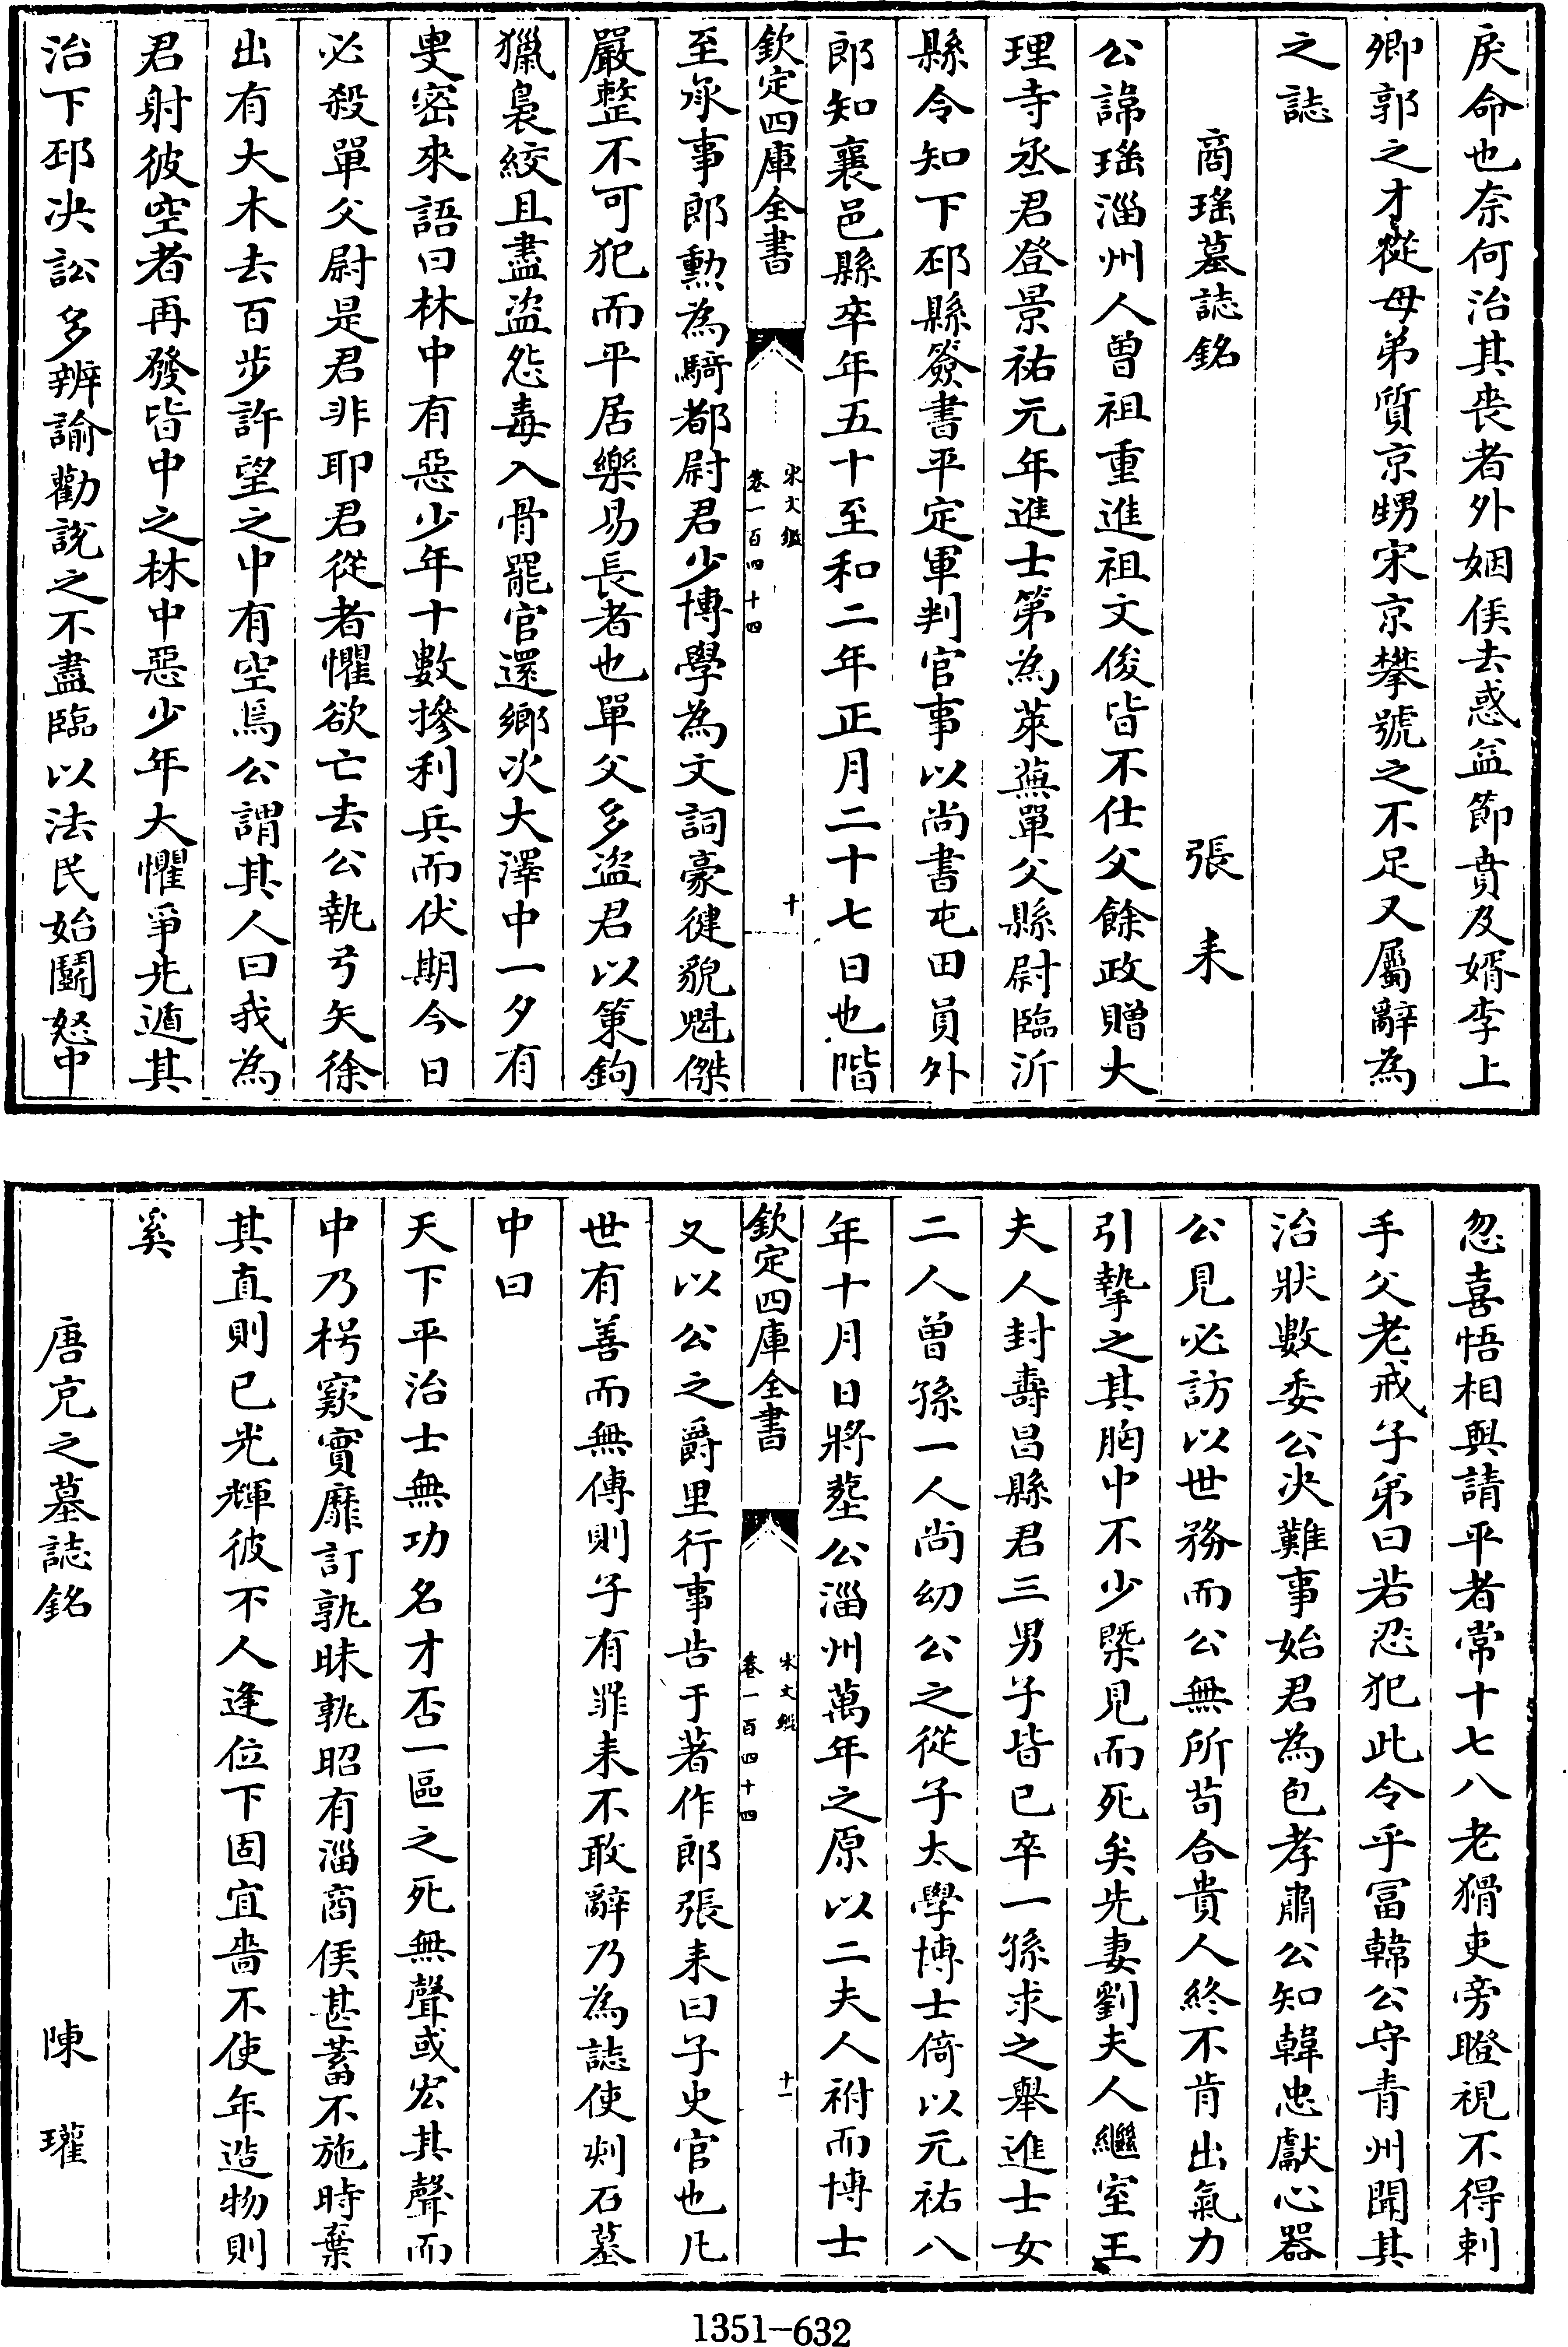 戾命也奈何治其丧者外姻侯去惑益節賁及婿李上
卿郭之才從母弟質京甥宋京攀號之不足又屬辭為
之誌
商瑤墓誌銘 張耒
公諱瑤淄州人曾祖重進祖文俊皆不仕父餘政贈大
理寺丞君登景祐元年進士第為萊蕪單父縣尉臨沂
縣令知下邳縣簽書平定軍判官事以尚書屯田員外
郎知襄邑縣卒年五十至和二年正月二十七日也階
欽定四庫全書
宋文鑑
卷一百四十四
十
至承事郎勲為騎都尉君少博學為文詞豪健貌魁傑
嚴整不可犯而平居樂易長者也單父多盜君以策鉤
獵裊絞且盡盜怨毒入骨罷官還鄉次大澤中一夕有
叟密來語曰林中有惡少年十數摻利兵而伏期今日
必殺單父尉是君非耶君從者懼欲亡去公執弓矢徐
出有大木去百步許望之中有空焉公謂其人曰我為
君射彼空者再發皆中之林中惡少年大懼爭先遁其
治下邳决訟多辨諭勸說之不盡臨以法民始鬬怒中
忽喜悟相與請平者常十七八老猾吏旁瞪視不得刺
手父老戒子弟曰若忍犯此令乎冨韓公守青州聞其
治狀數委公决難事始君為包孝肅公知韓忠獻心器
公見必訪以世務而公無所苟合貴人終不肯出氣力
引摯之其胸中不少槩見而死矣先妻劉夫人繼室王
夫人封壽昌縣君三男子皆已卒一孫求之舉進士女
二人曾孫一人尚幼公之從子太學博士倚以元祐八
年十月日將塟公淄州萬年之原以二夫人祔而博士
欽定四庫全書
宋文鑑
卷一百四十四
十一
又以公之爵里行事告于著作郎張耒曰子史官也凡
世有善而無傳則子有罪耒不敢辭乃為誌使刻石墓
中曰
天下平治士無功名才否一區之死無聲或宏其聲而
中乃枵窾實靡訂孰昧孰昭有淄商侯甚蓄不施時棄
其直則已光輝彼不人逢位下固宜嗇不使年造物則
奚
唐充之墓誌銘 陳瓘
1351-632